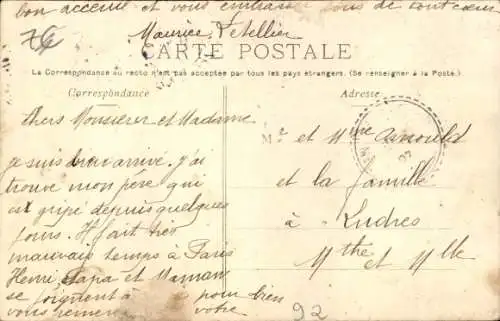 bon accueil et vous embrasse tous de tout cœur
Maurice Petellier
CARTE POSTALE
La Correspondance au recto n'est pas acceptée par tous les pays étrangers. (Se renseigner à la Poste.)
Correspondance
Adresse
Chers Monsieur et Madame
je suis bien arrivé. j'ai
trouvé mon père qui
est grippé depuis quelques
jours. Il fait très
mauvais temps à Paris
Henri, Papa et Maman
se joignent à pour bien
vous remercier votre
Mr et Mme Arnould
et la famille
à Ludres
Mthe et Mlle
92